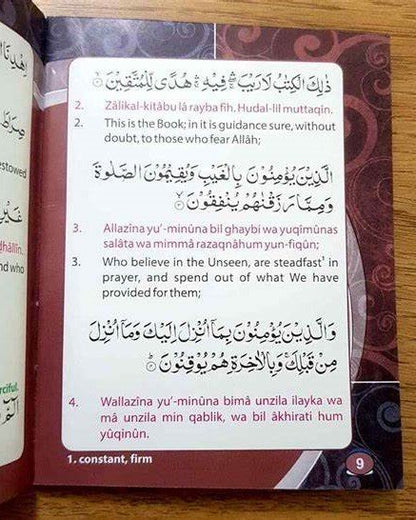 اِهْدِنَا
صِرَاطَ
estowed
غَيْرِ
dhâllîn.
nd who
rciful.
ذٰلِكَ الْكِتٰبُ لَا رَيْبَ ۛ فِيْهِ ۛ هُدًى لِّلْمُتَّقِيْنَ ۙ
2. Zâlikal-kitâbu lâ rayba fih. Hudal-lil muttaqîn.
2. This is the Book; in it is guidance sure, without
doubt, to those who fear Allâh;
الَّذِيْنَ يُؤْمِنُوْنَ بِالْغَيْبِ وَيُقِيْمُوْنَ الصَّلٰوةَ
وَمِمَّا رَزَقْنٰهُمْ يُنْفِقُوْنَ ۙ
3. Allazîna yu’-minûna bil ghaybi wa yuqîmûnas
salâta wa mimmâ razaqnâhum yun-fiqûn;
3. Who believe in the Unseen, are steadfast¹ in
prayer, and spend out of what We have
provided for them;
وَالَّذِيْنَ يُؤْمِنُوْنَ بِمَآ اُنْزِلَ اِلَيْكَ وَمَآ اُنْزِلَ
مِنْ قَبْلِكَ ۚ وَبِالْاٰخِرَةِ هُمْ يُوْقِنُوْنَ ۗ
4. Wallazîna yu’-minûna bimâ unzila ilayka wa
mâ unzila min qablik, wa bil âkhirati hum
yûqinûn.
1. constant, firm
9